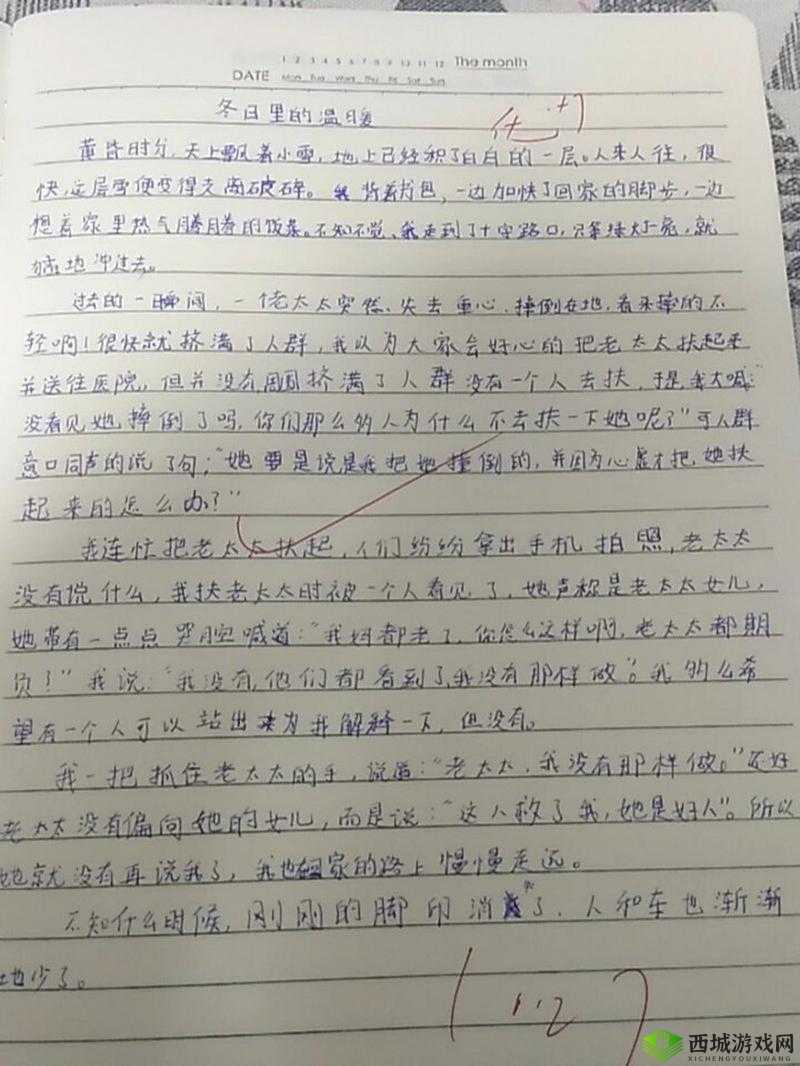 1 2 3 4 5 6 7 8 9 10 11 12 The month
DATE Mon Tue Wed Thu Fri Sat Sun
冬日里的温暖
黄昏时分,天上飘着小雪,地上已经积了白白的一层。人来人往,很
快,这层雪便变得支离破碎。我背着书包,一边加快了回家的脚步,一边
想着家里热气腾腾的饭菜。不知不觉,我走到了十字路口,只等绿灯一亮,就
地冲过去。
过去的一瞬间,一个老太太突然失去重心,摔倒在地,看来摔的不
轻啊!很快就挤满了人群,我以为大家会好心的把老太太扶起来
并送往医院,但并没有,挤满了人群没有一个人去扶,于是我大喊:
没看见她摔倒了吗,你们那么多人为什么不去扶一下她呢?"可人群
意口同声的说了句:"她要是说是我把她撞倒的,并因为心虚才把她扶
起来的怎么办?"
我连忙把老太太扶起,人们纷纷拿出手机拍照,老太太
没有说什么,我扶老太太时被一个人看见了,她声称是老太太女儿,
她带有一点点哭腔喊道:"我妈都老了,你怎么这样啊,老太太都期
负?"我说:"我没有,他们都看到了,我没有那样做"。我多么希
望有一个人可以站出来为我解释一下,但没有。
我一把抓住老太太的手,说道:"老太太,我没有那样做。"还好
老太太没有偏向她的女儿,而是说:"这人救了我,她是好人"。所以
她就没有再说我了,我也回家的路上慢慢走远。
不知什么时候,刚刚的脚印消失了,人和车也渐渐
地少了。
西城游戏网
XICHENGYOUXIWANG